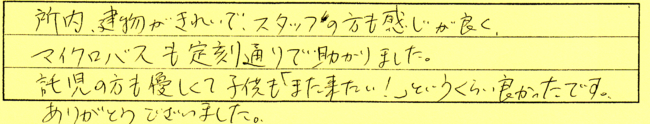 所内、建物がきれいで、スタッフの方も感じが良く、
マイクロバスも定刻通りで助かりました。
託児の方も優しくて子供も「また来たい!」というくらい良かったです。
ありがとうございました。